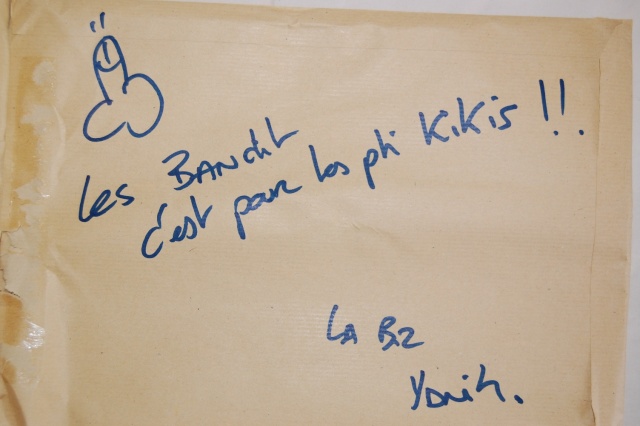 Les BANdit
c'est pour les pti KiKis !!.
LA Biz